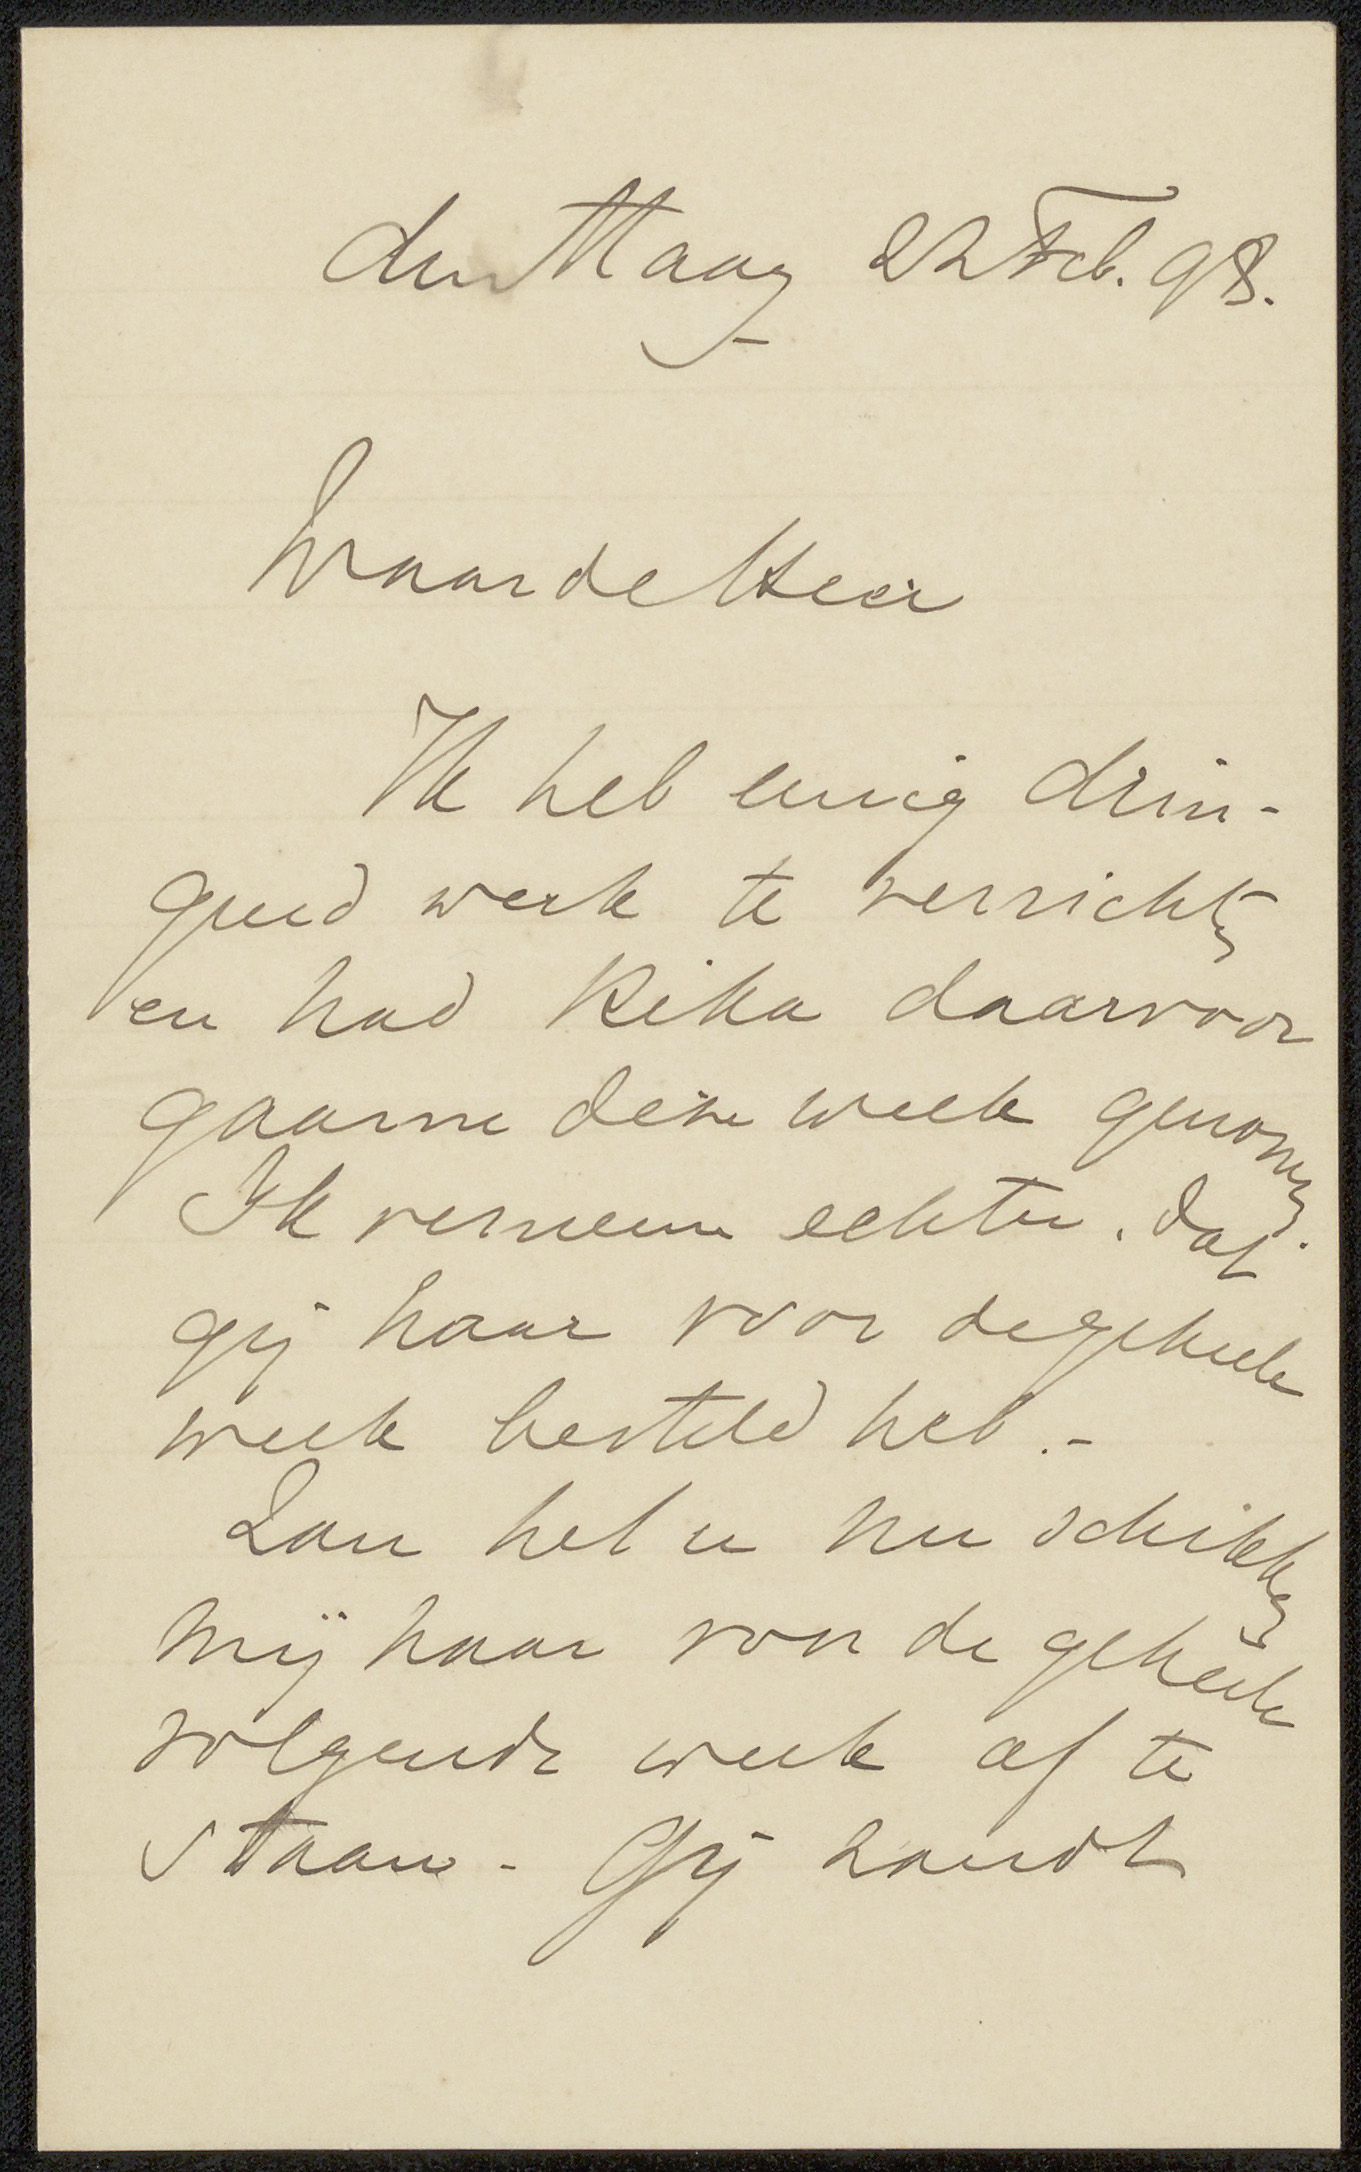 den Haag 22 Feb. 98.
Waarde Heer
Ik heb eenig drin-
gend werk te verrichten
en had Rika daarvoor
gaarne deze week genomen.
Ik verneem echter, dat
gij haar voor de geheele
week besteld heb.-
Zou het u nu schikken
mij haar voor de geheele
volgende week af te
staan - Gij zoudt